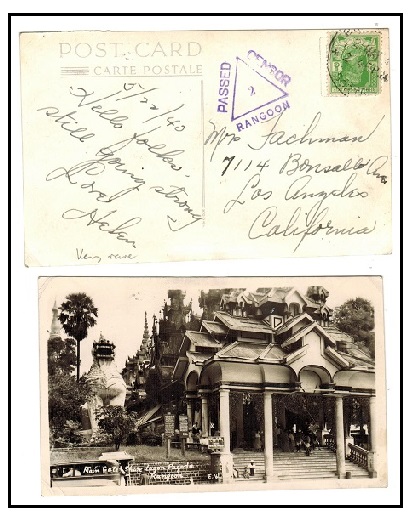 POST CARD
CARTE POSTALE
5/22/40
Hello folks,
still going strong
Love
Helen
Very rare
PASSED
CENSOR
2
RANGOON
Mrs Jackman
7114 Bonsallo Ave
Los Angeles
California
Main Gate Shwe Dagon Pagoda
Rangoon